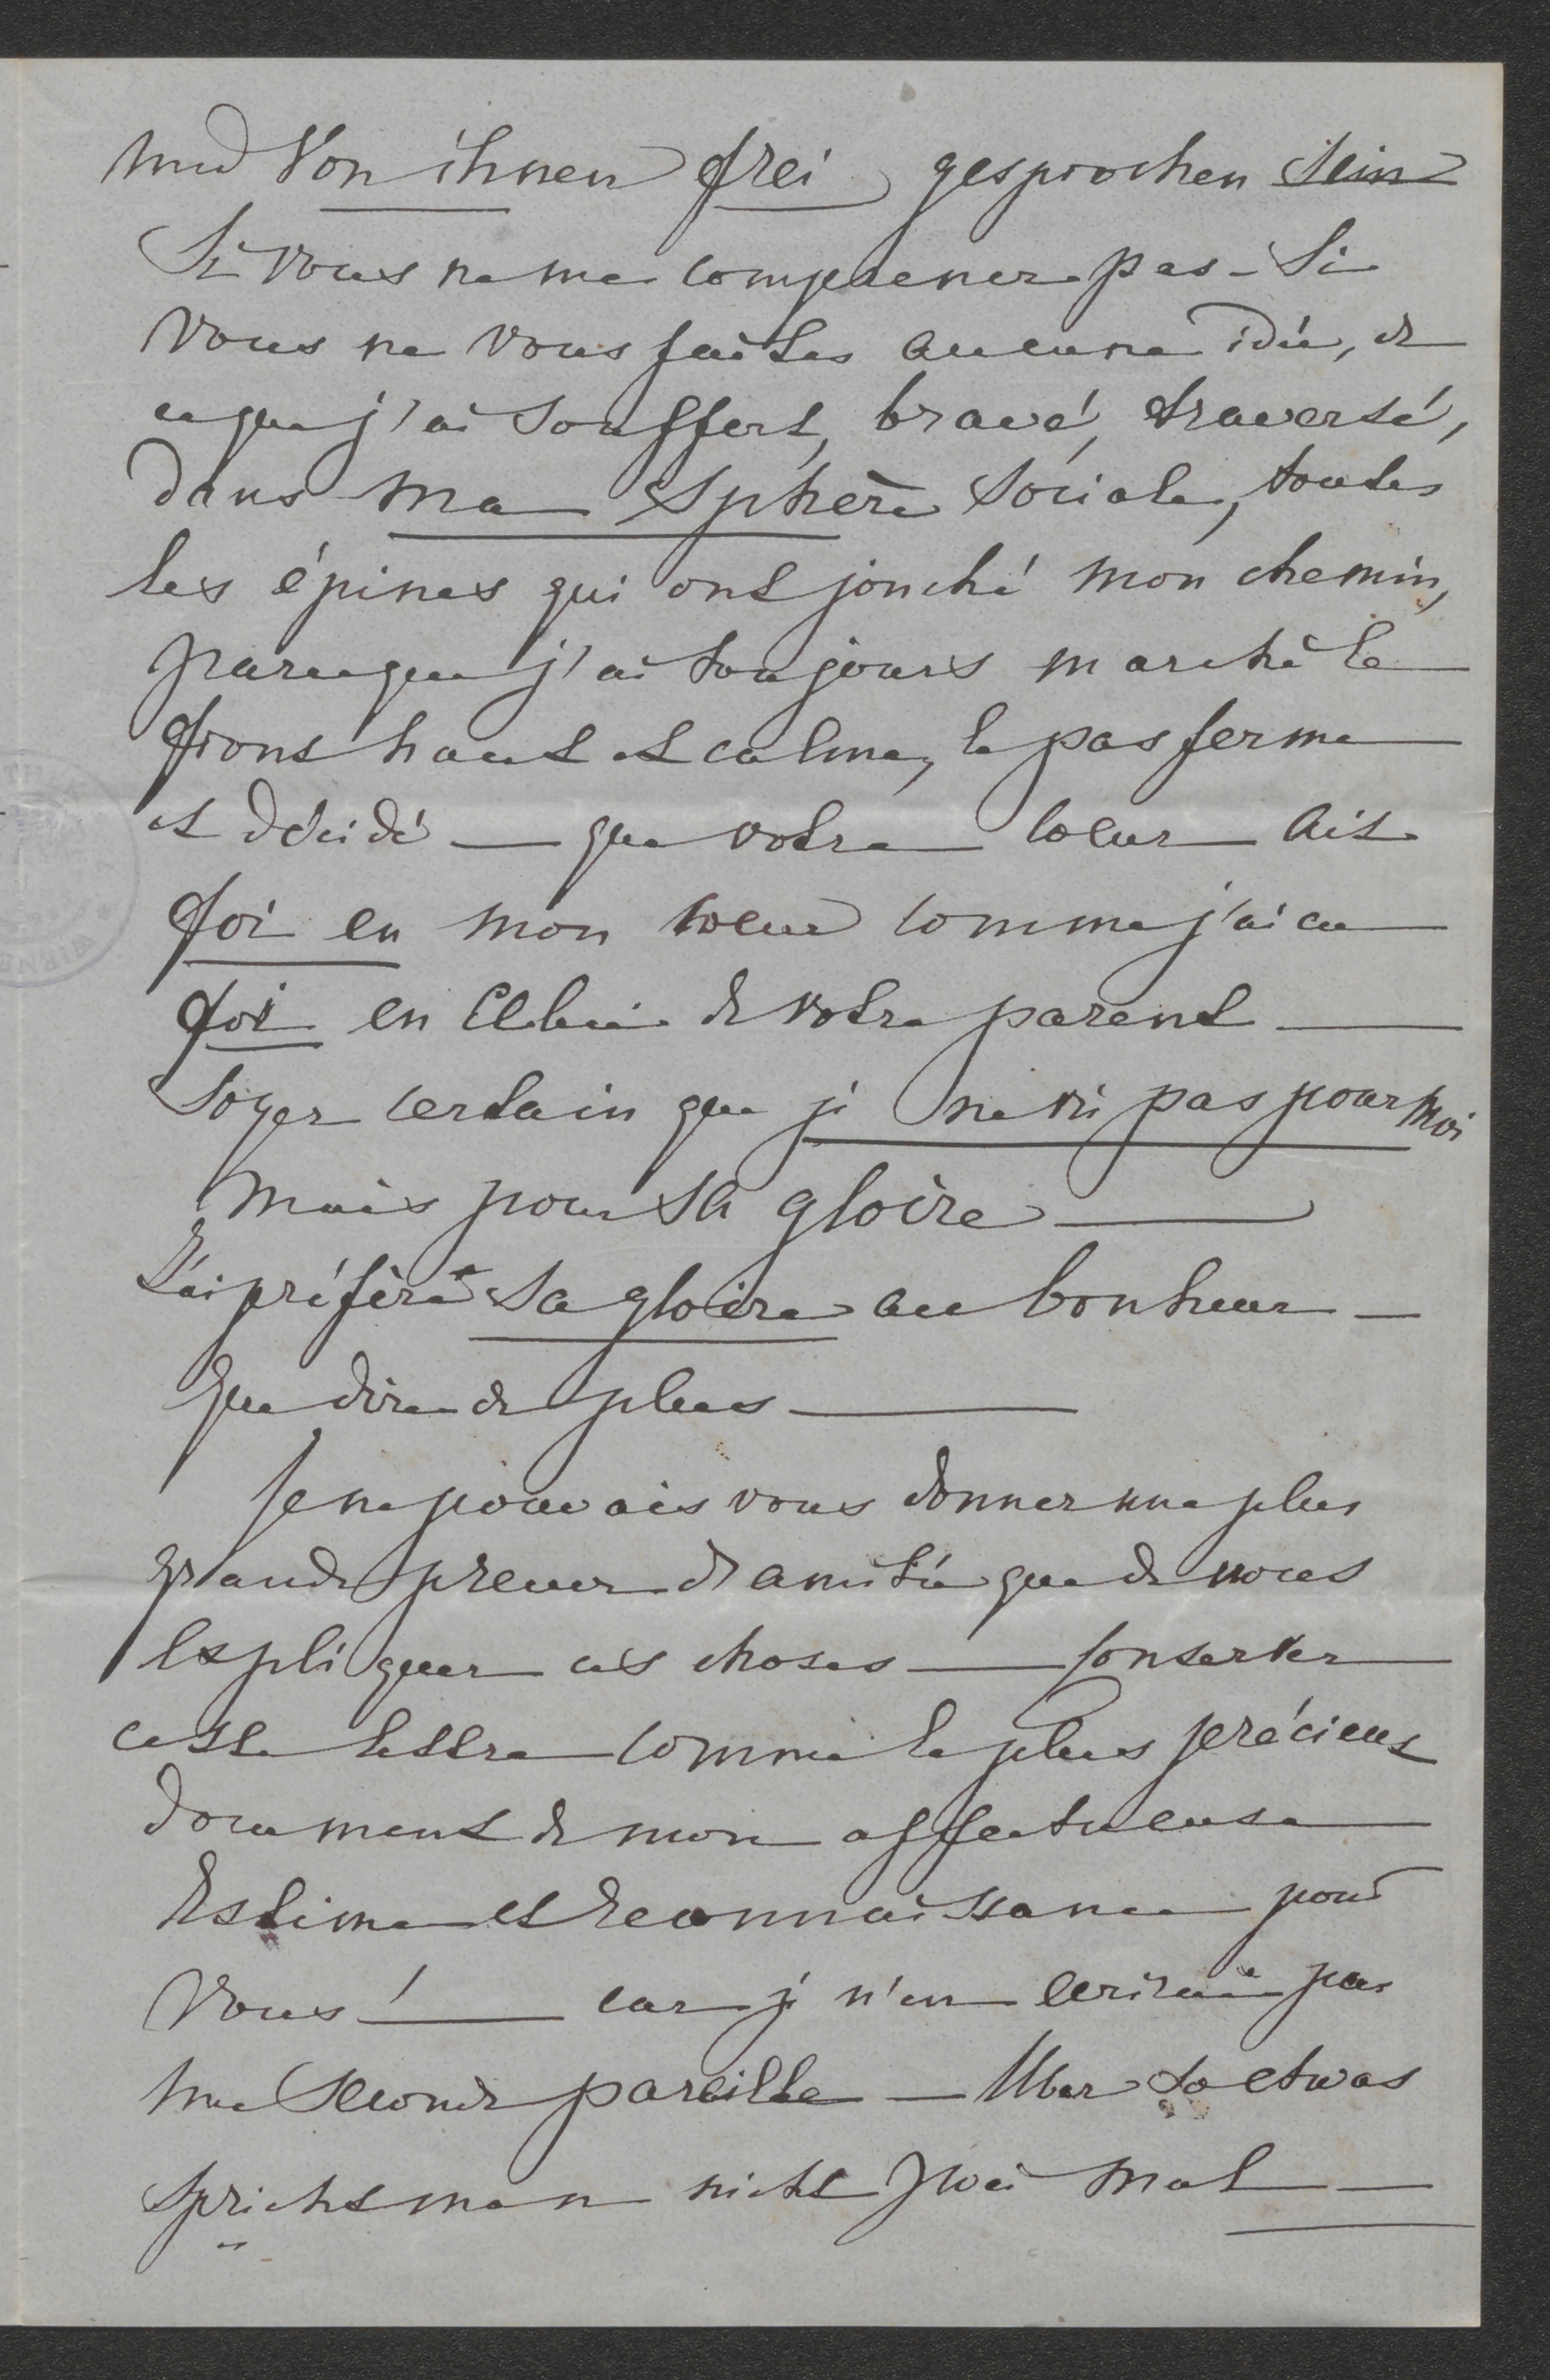 und Von ihnen frei gesprochen sein
Si vous ne me comprenez pas - Si
vous ne vous faites aucune idée, de
ce que j'ai souffert, bravé, traversé,
dans ma sphère sociale, toutes
les épines qui ont jonché mon chemin,
parceque j'ai toujours marché le
front haut et calme, le pas ferme
et décidé — que votre coeur ait
foi en mon coeur comme j'ai eu
foi en Celui de votre parent —
Soyez certain que je ne vis pas pour moi
mais pour sa gloire —
J'ai préféré sa gloire au bonheur —
Que dire de plus —
Je ne pouvais vous donner une plus
grande preuve d'amitié que de vous
expliquer ces choses — Conservez
cette lettre comme le plus précieux
document de mon affectueuse
Estime et Reconnaissance pour
Vous! — car je n'en ecrirai pas
une Seconde pareille — Uber so etwas
spricht man nicht zwei mal —